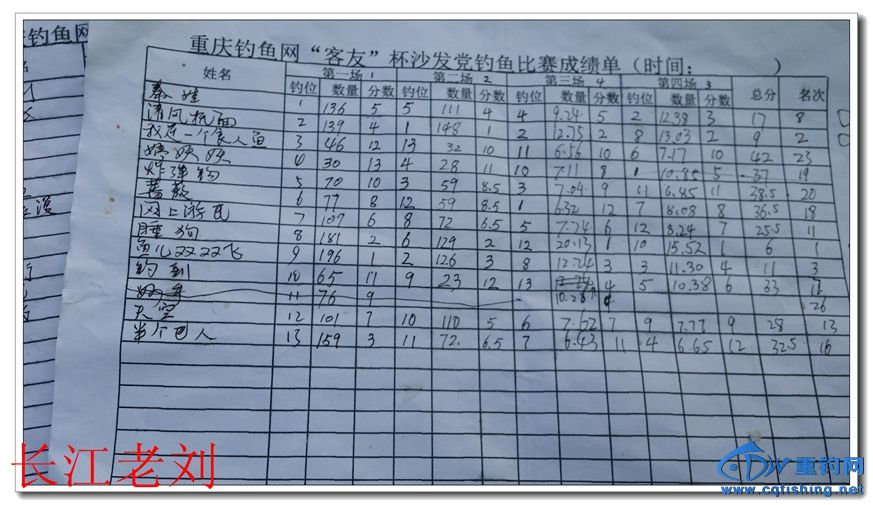 钓鱼网
重庆钓鱼网“客友”杯沙发党钓鱼比赛成绩单（时间：　　）
姓名 第一场 1 第二场 2 第三场 4 第四场 3 总分 名次
钓位 数量 分数 钓位 数量 分数 钓位 数量 分数 钓位 数量 分数
1 136 5 5 111 4 4 9.24 5 2 12.38 3 17 8
清风 2 139 4 1 148 1 2 12.75 2 8 13.03 2 9 2
我是一个食人鱼 3 46 12 13 32 10 11 6.56 10 6 7.17 10 42 23
姨姨 4 30 13 4 28 11 10 7.11 8 1 10.85 5 37 19
炸弹钩 5 70 10 3 59 8.5 3 7.04 9 11 6.85 11 38.5 20
蔷薇 6 77 8 12 59 8.5 1 6.32 12 7 8.08 8 36.5 18
网上游民 7 107 6 8 72 6.5 5 7.74 6 12 8.24 7 25.5 11
睡狗 8 181 2 6 129 2 12 20.13 1 10 15.52 1 6 1
鱼儿双双飞 9 196 1 2 126 3 8 12.24 3 3 11.30 4 11 3
钓到 10 65 11 9 23 12 13 10.28 4 5 10.38 6 33
11 76 9 26
天空 12 101 7 10 110 5 6 7.62 7 9 7.77 9 28 13
半个巴人 13 159 3 11 72. 6.5 7 6.43 11 4 6.65 12 32.5 16
长江老刘
重钓网
www.cqfishing.net